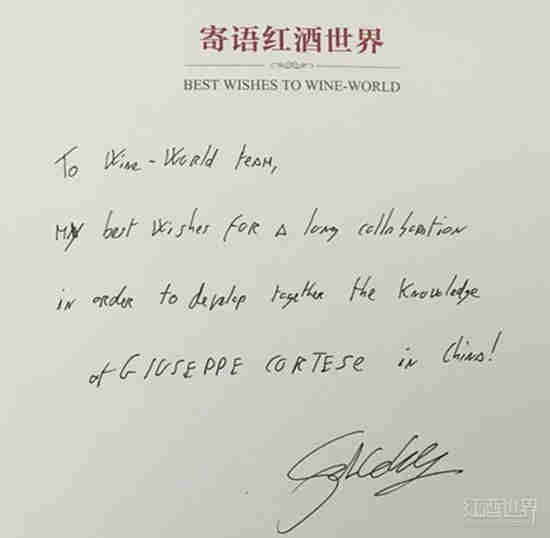 寄语红酒世界
BEST WISHES TO WINE-WORLD
To Wine-World team,
My best wishes for a long collaboration
in order to develop together the knowledge
of GIUSEPPE CORTESE in China!
红酒世界